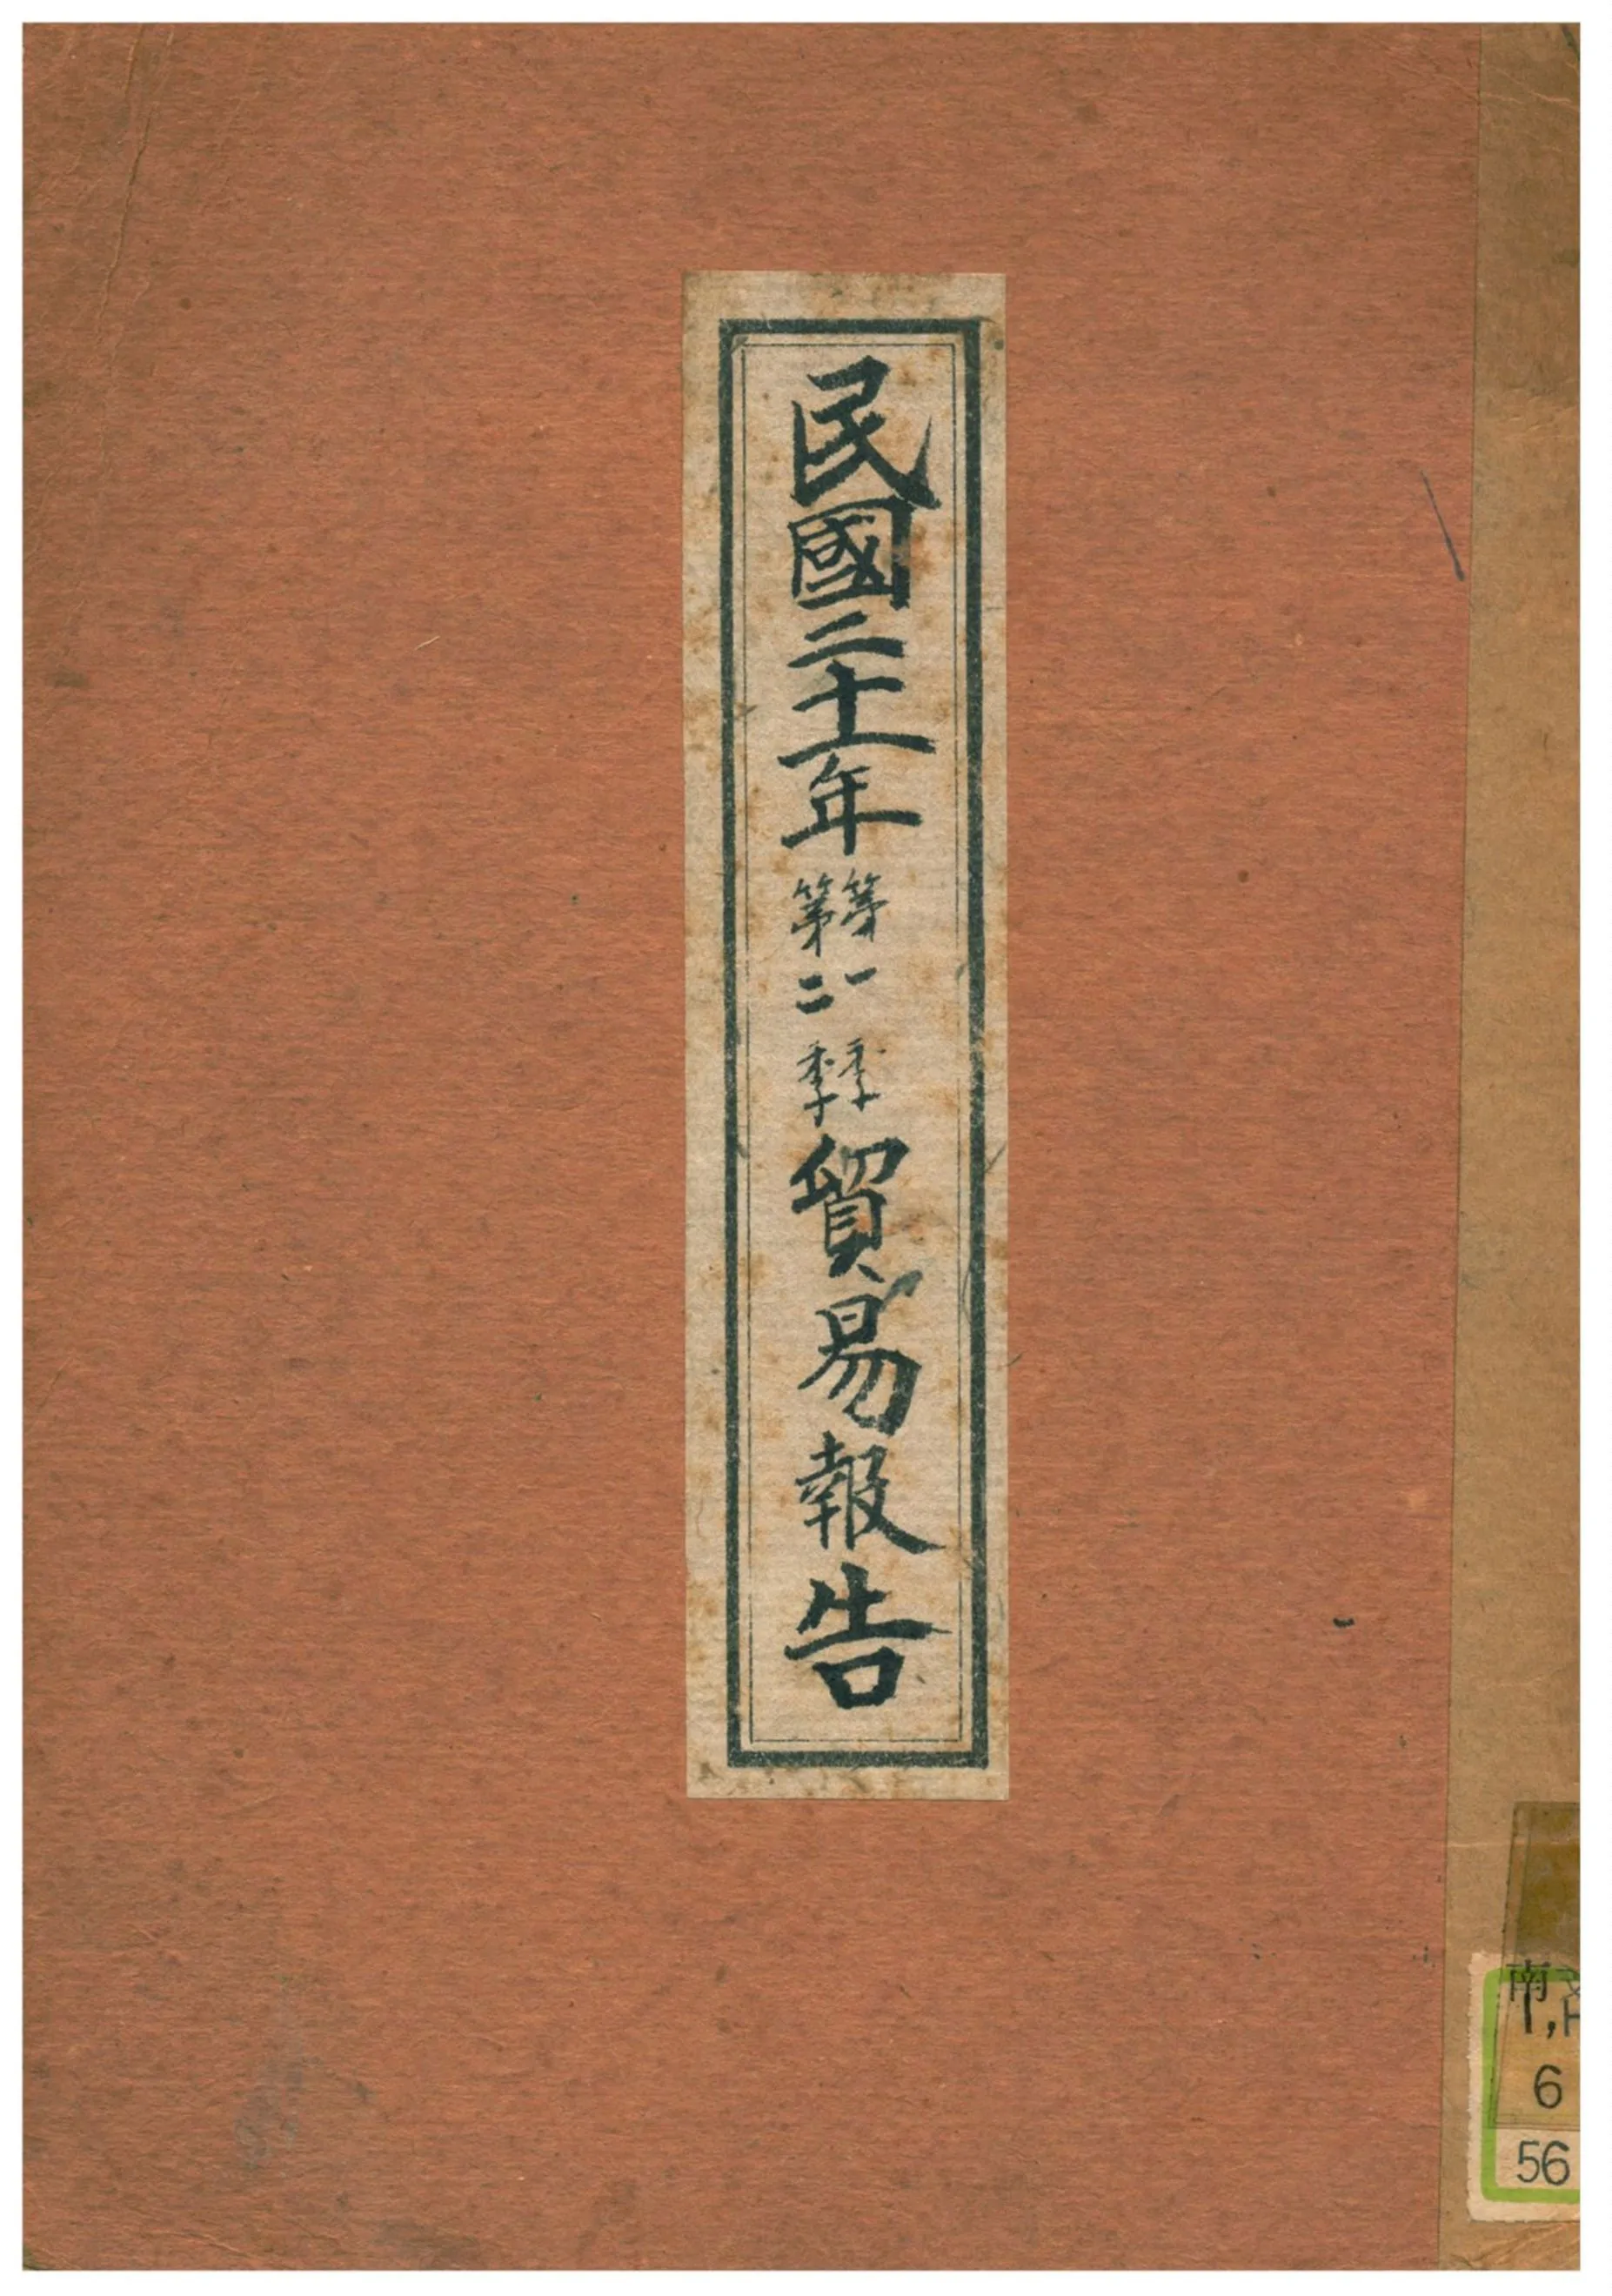 民國二十一年
第一季
第二季
貿易報告
南
6
56